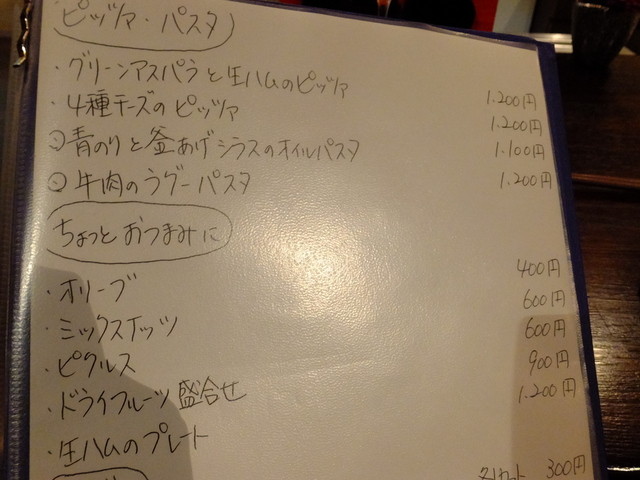 ピッツァ・パスタ
・グリーンアスパラと生ハムのピッツァ 1.200円
・4種チーズのピッツァ 1.200円
・青のりと釜あげシラスのオイルパスタ 1.100円
・牛肉のラグーパスタ 1.200円
ちょっとおつまみに
・オリーブ 400円
・ミックスナッツ 600円
・ピクルス 600円
・ドライフルーツ盛合せ 900円
・生ハムのプレート 1.200円
300円